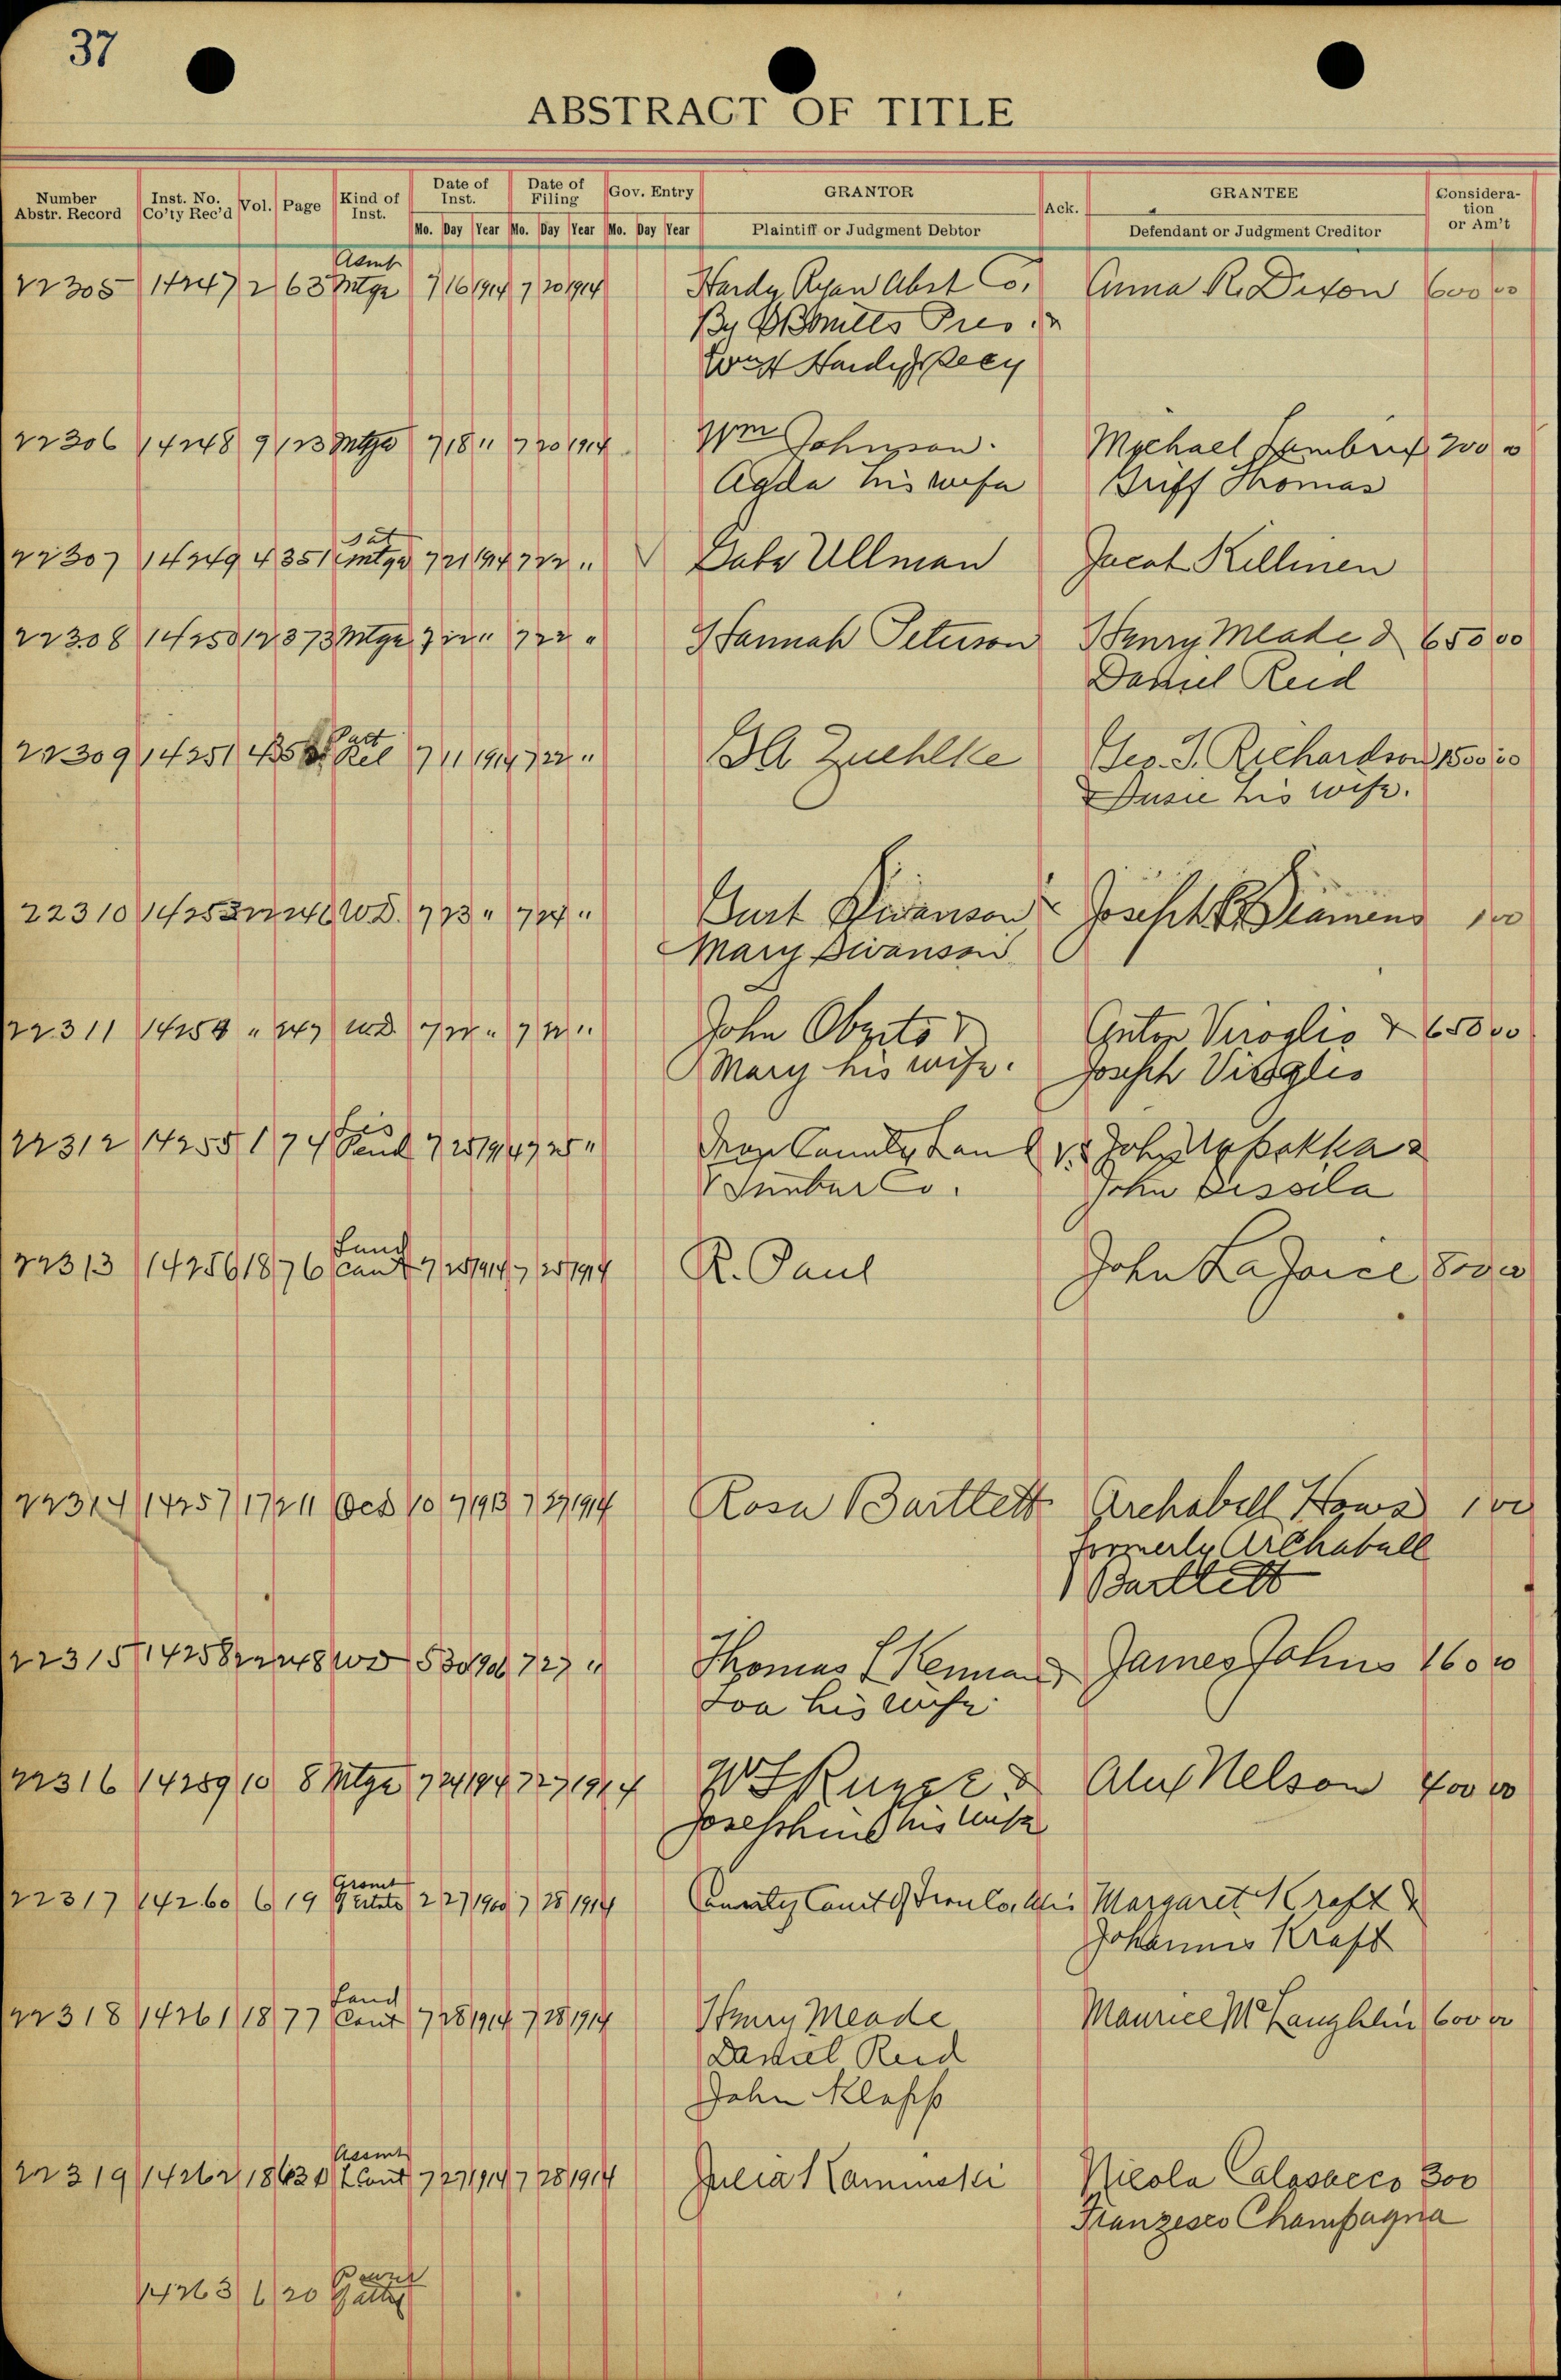 37
ABSTRACT OF TITLE
Number Abstr. Record Inst. No. Co'ty Rec'd Vol. Page Kind of Inst. Date of Inst. Date of Filing Gov. Entry GRANTOR Ack. GRANTEE Consideration or Am't
Mo. Day Year Mo. Day Year Mo. Day Year Plaintiff or Judgment Debtor Defendant or Judgment Creditor
Asmt
22305 14247 2 63 Mtge 7 16 1914 7 20 1914 Hardy Ryan Abst Co. Anna R. Dixon 600 00
By Pres.
Hardy Secy
22306 14248 9 123 Mtge 7 18 " 7 20 1914 Wm Johnson. Michael 200
Agda his wife Griff Thomas
Sat
22307 14249 4 351 mtge 7 21 1914 7 22 " Gabe Ullman Jacob Killinen
22308 14250 12 373 Mtge 7 22 " 7 22 " Hannah Peterson Henry Meade & 650 00
Daniel Reid
Part
22309 14251 4 35 Rel 7 11 1914 7 22 " Zuehlke Geo. S. Richardson 1500 00
Susie his wife.
22310 14253 22 246 WD. 7 23 " 7 24 " Gust Swanson & Joseph 1 00
Mary Swanson
22311 14254 " 247 WD 7 22 " John & Viroglio & 650 00
Mary his wife. Joseph Viroglio
Lis
22312 14255 1 74 Pend 7 25 1914 7 25 " Iron County Land vs John &
& Lumber Co. John
Land
22313 14256 18 76 Cont 7 25 1914 7 25 1914 R. Paul John LaJoice 800 00
22314 14257 17 211 Qcd 10 7 1913 7 27 1914 Rosa Bartlett Archabell Hows 1 00
formerly Archabell
Bartlett
22315 14258 22 248 WD 5 30 1906 7 27 " Thomas L Kennan James Johns 160 00
his wife
22316 14259 10 8 Mtge 7 24 1914 7 27 1914 & Nelson 400 00
Josephine his wife
22317 14260 6 19 2 27 1900 7 28 1914 County Court of Iron Co. Wis Margaret Kraft &
Johannes Kraft
Land
22318 14261 18 77 Cont 7 28 1914 7 28 1914 Henry Meade Maurice McLaughlin 600 00
Daniel Reid
John Klapp
Assmt
22319 14262 18 L Cont 7 27 1914 7 28 1914 Julia Kaminski Nicola Calasacco 300
Franzesco Champagna
Power
14263 6 20 of atty